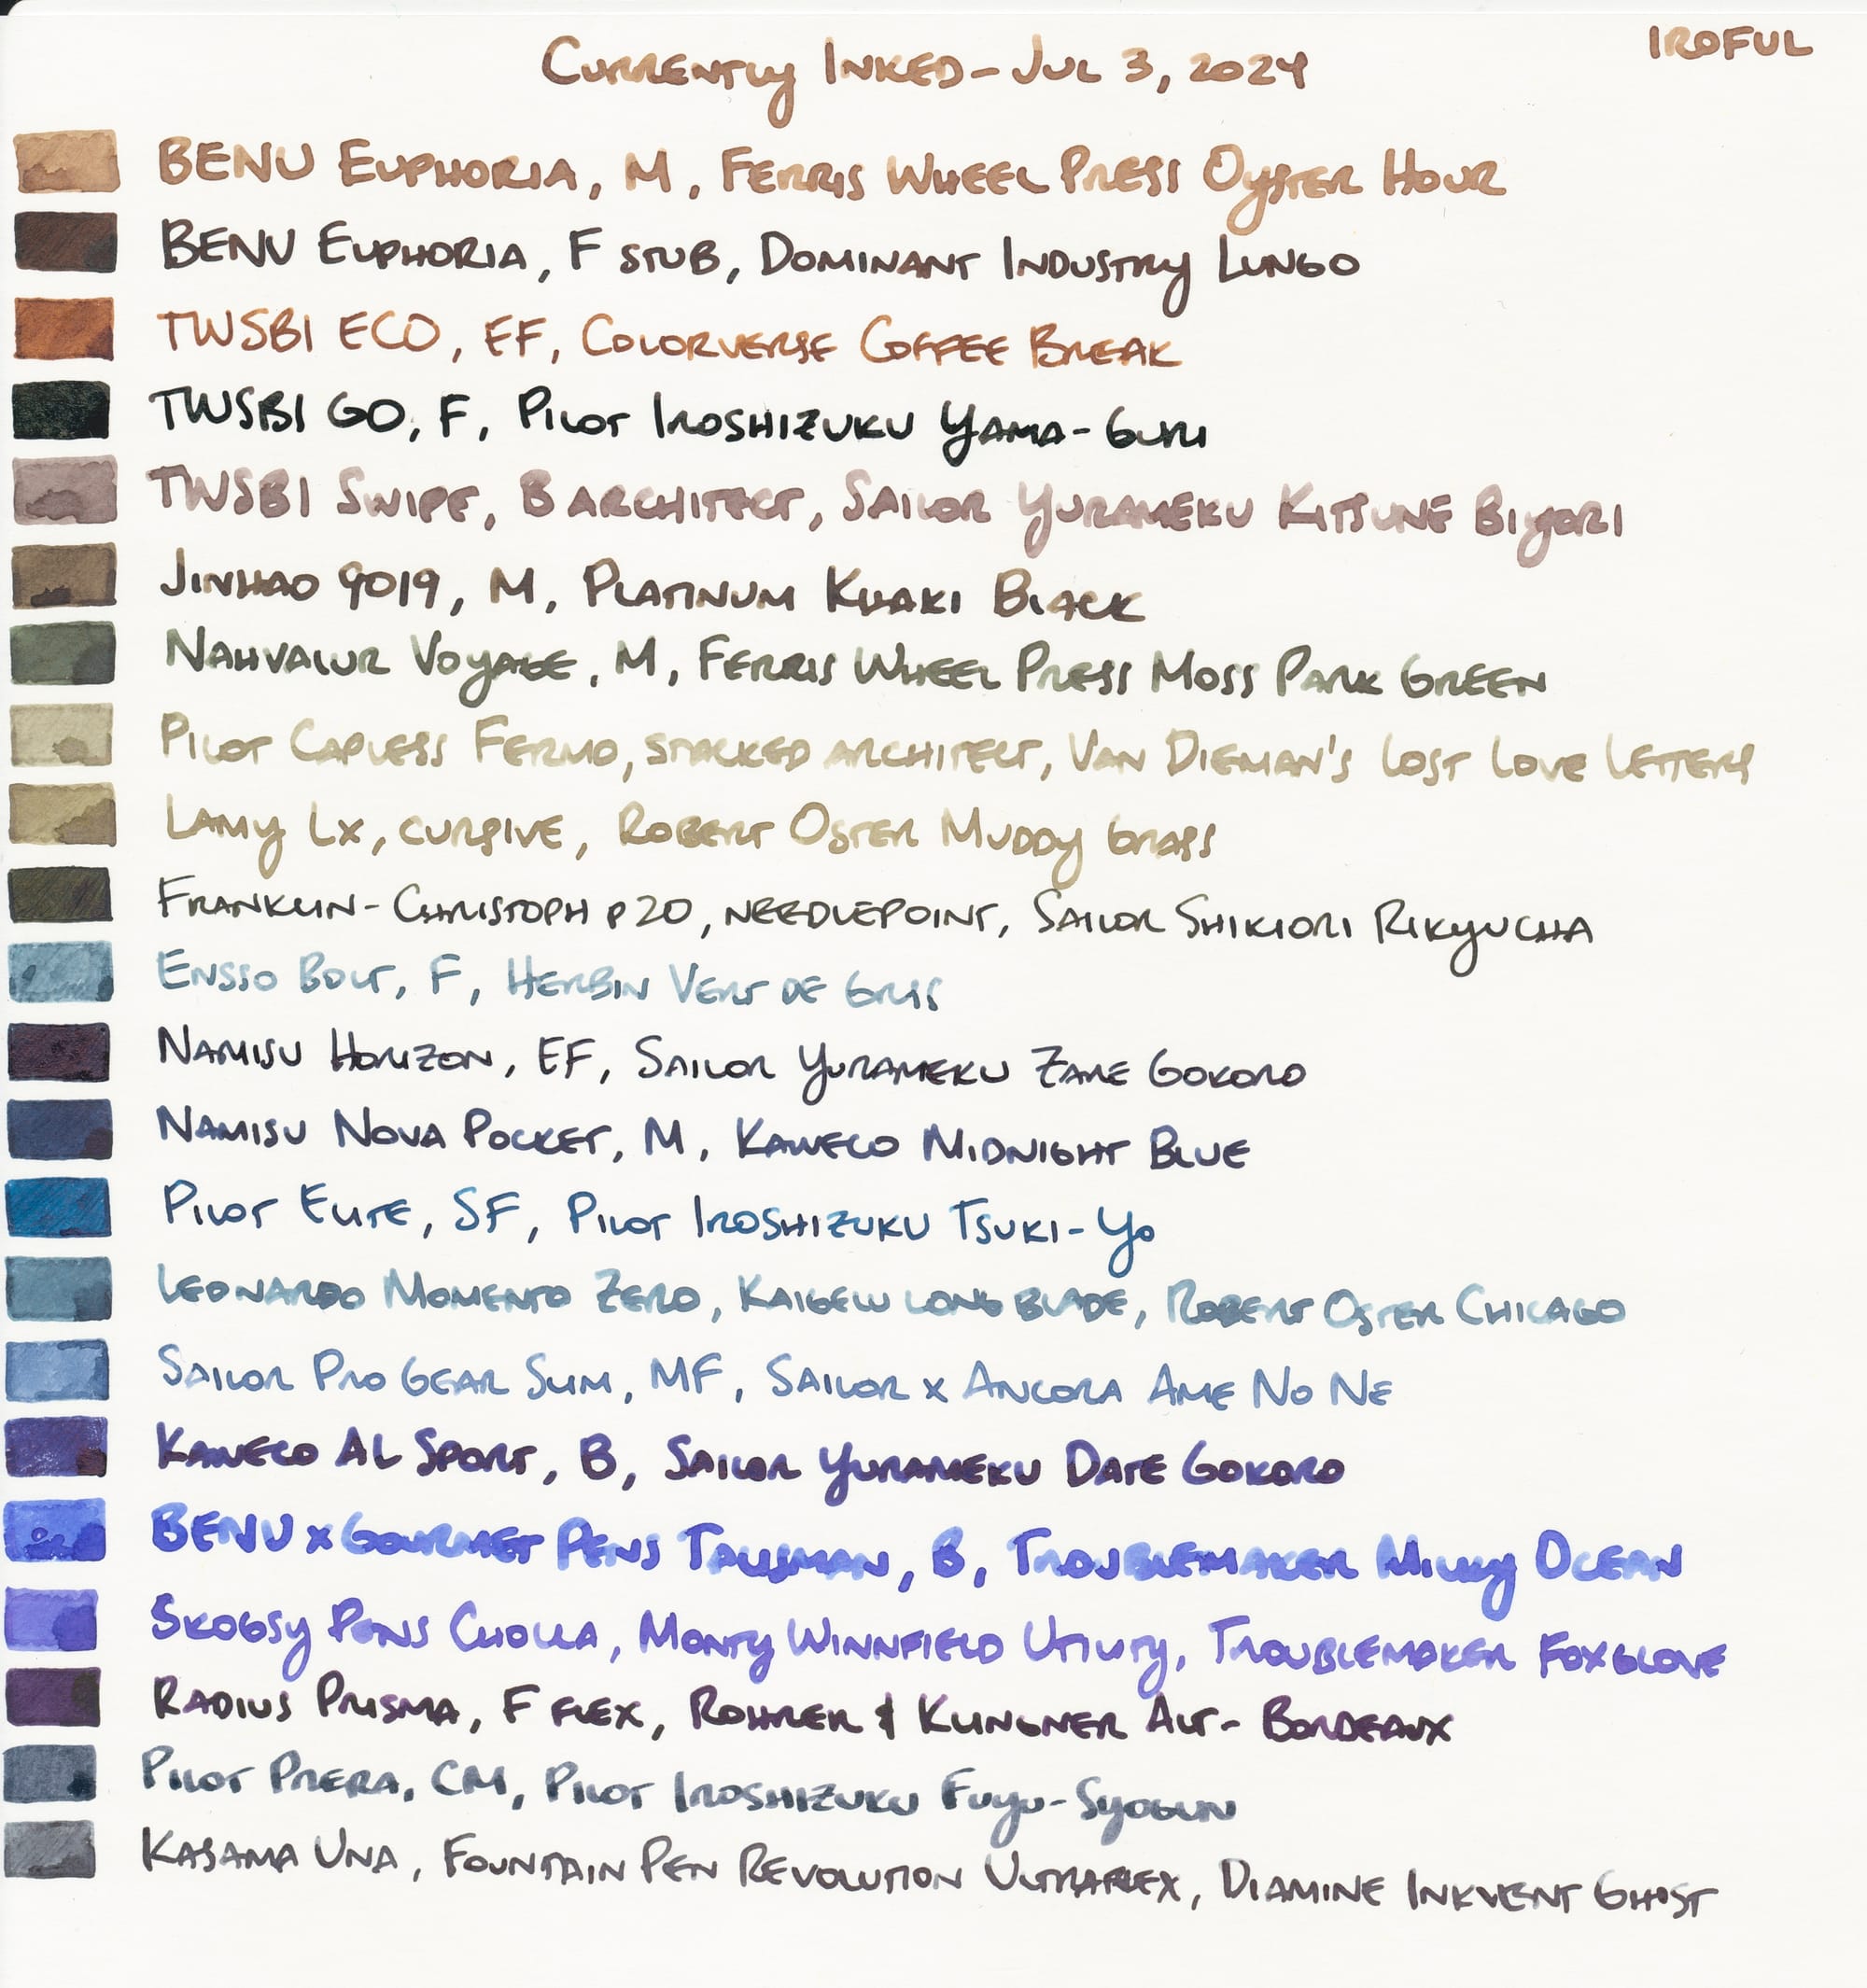 Currently Inked - Jul 3, 2024
IROFUL
BENU Euphoria, M, Ferris Wheel Press Oyster Hour
BENU Euphoria, F stub, Dominant Industry Lungo
TWSBI ECO, EF, Colorverse Coffee Break
TWSBI GO, F, Pilot Iroshizuku Yama-Guri
TWSBI Swipe, B architect, Sailor Yurameku Kitsune Biyori
Jinhao 9019, M, Platinum Khaki Black
Nahvalur Voyage, M, Ferris Wheel Press Moss Park Green
Pilot Capless Fermo, stacked architect, Van Dieman's Lost Love Letters
Lamy Lx, cursive, Robert Oster Muddy Grass
Franklin-Christoph p20, needlepoint, Sailor Shikiori Rikyucha
Ensso Bolt, F, Herbin Vert de Gris
Namisu Horizon, EF, Sailor Yurameku Zare Gokoro
Namisu Nova Pocket, M, Kaweco Midnight Blue
Pilot Elite, SF, Pilot Iroshizuku Tsuki-Yo
Leonardo Momento Zero, Kaigelu long blade, Robert Oster Chicago
Sailor Pro Gear Slim, MF, Sailor x Ancora Ame No Ne
Kaweco AL Sport, B, Sailor Yurameku Date Gokoro
BENU x Gourmet Pens Talisman, B, Troublemaker Milky Ocean
Skogsy Pens Cholla, Monty Winnfield Utility, Troublemaker Foxglove
Radius Prisma, F flex, Rohrer & Klingner Alt-Bordeaux
Pilot Prera, CM, Pilot Iroshizuku Fuyu-Syogun
Kasama Una, Fountain Pen Revolution Ultraflex, Diamine Inkvent Ghost